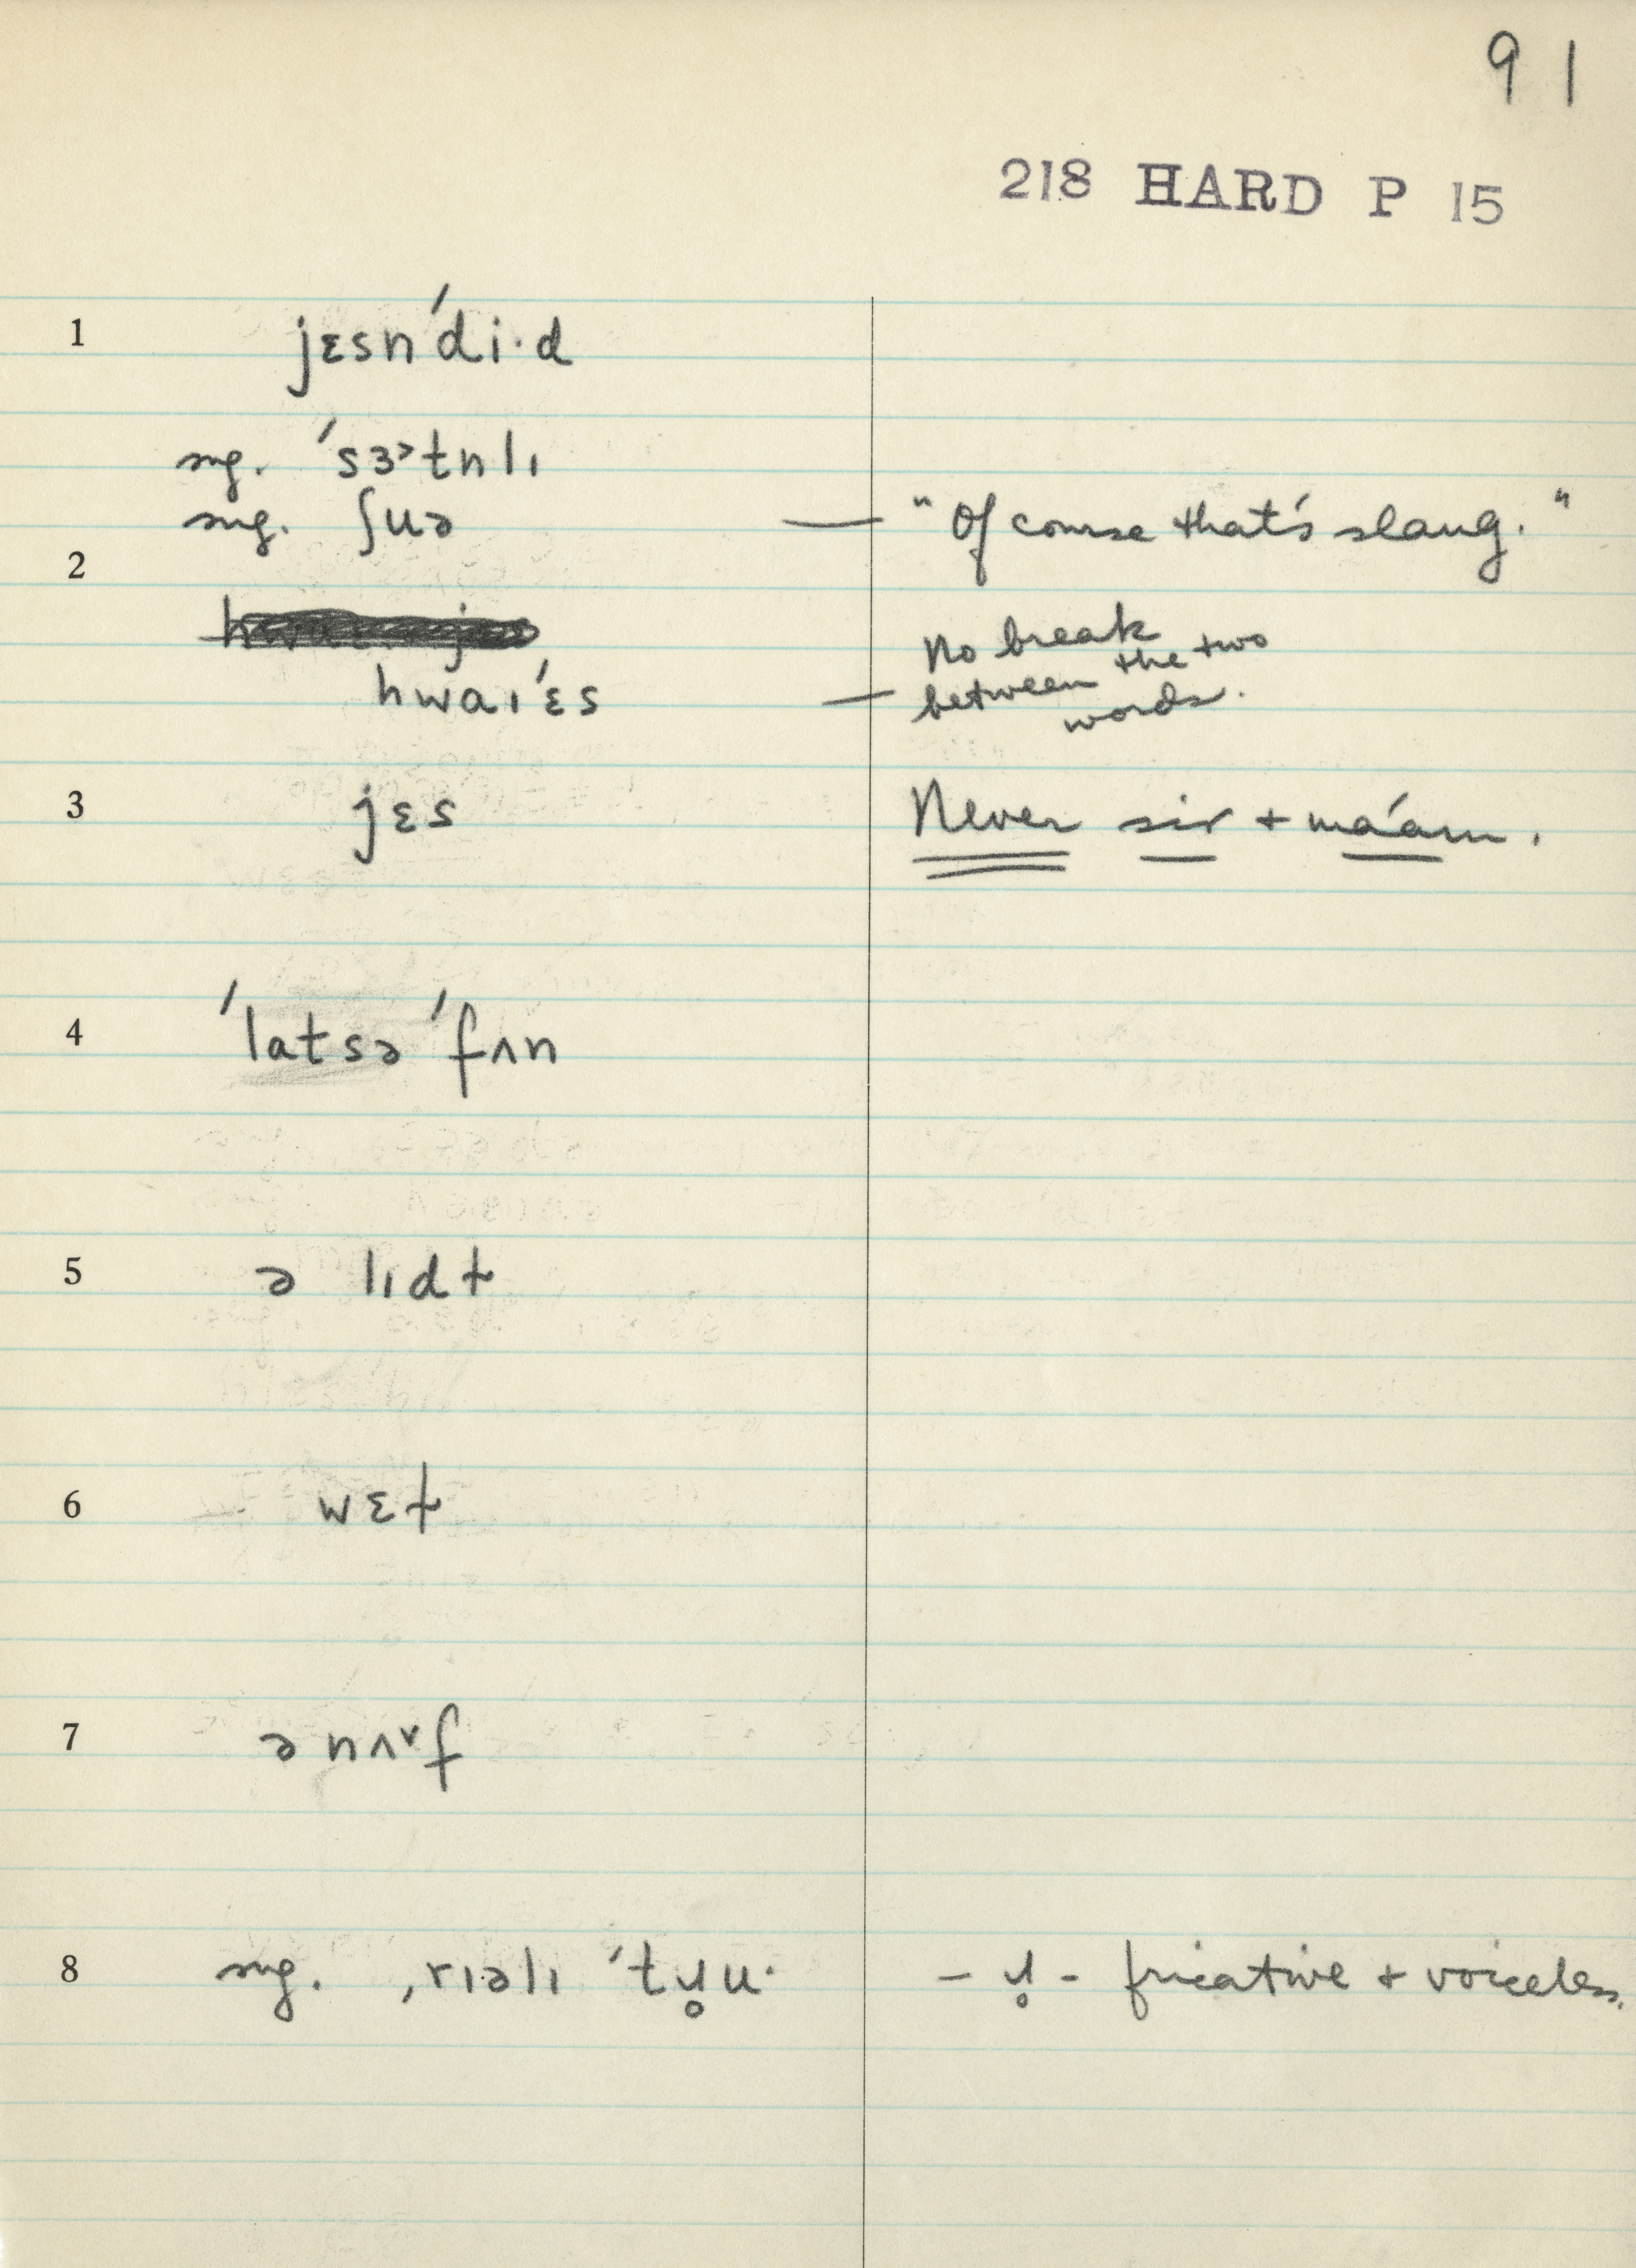 91
218 HARD P 15
1 jɛsn'di·d
sug. 'sɜ˃tnlɪ
sug. ʃuə — "Of course that's slang."
2
hwaɪ'ɛs — No break between the two words.
3 jɛs Never sir + ma'am.
4 'latsə 'fʌn
5 ə lɪdɫ
6 wɛɫ
7 ənʌ˅f
8 sug. ,rɪəlɪ 'tɥ̥u· – ɥ̥ – fricative + voiceless.